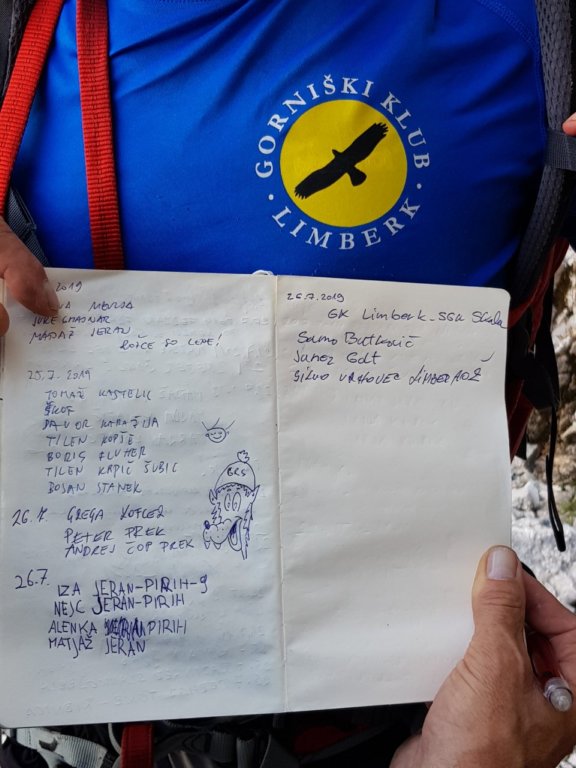 GORNIŠKI KLUB
· LIMBERK ·
2019
JURE CHADNAR
MADAŽ JERAN
ROŽCE SO LEPE!
25.7.2019
TOMAŽ KASTELIC
ŠKOF
DAVOR KARAŽIJA
TILEN KOPŠE
BORIS FLUHER
TILEN KRPIČ ŠUBIC
BOJAN STANEK
BRS
26.7. GREGA KOFLER
PETER PREK
ANDREJ ČOP PREK
26.7.
IZA JERAN-PIRIH-9
NEJC JERAN-PIRIH
ALENKA PIRIH
MATJAŽ JERAN
26.7.2019
GK Limberk - SGK Skala
Samo Butkovič
Janez
SILVO VRHOVEC